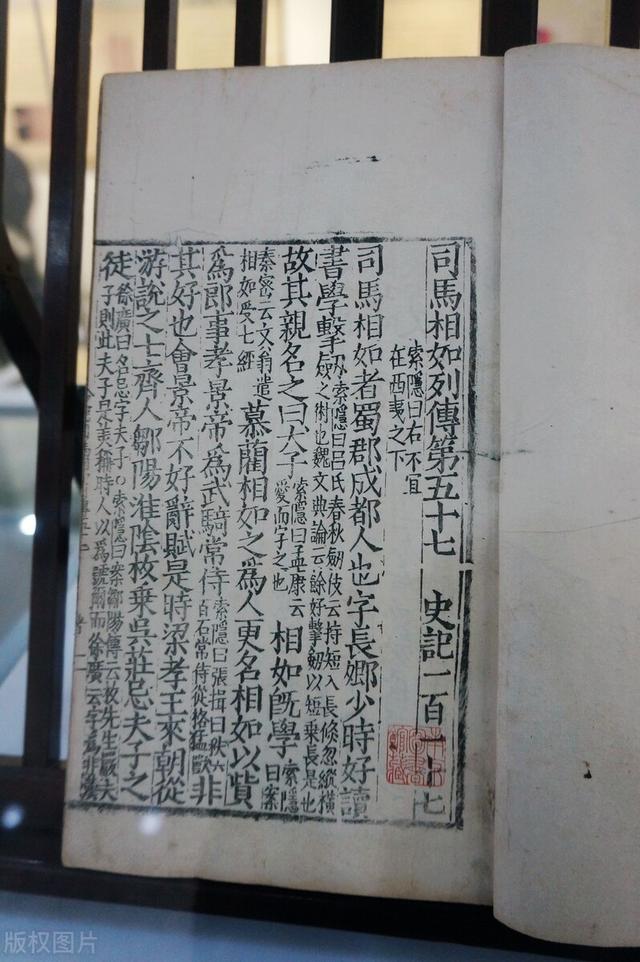 司馬相如列傳第五十七 史記一百一十七
索隱曰右不宜
在西夷之下
司馬相如者蜀郡成都人也字長卿少時好讀
書學擊劔 索隱曰呂氏春秋劔伎云持短入長倐忽縱橫
之術也魏文典論云餘好擊劔以短乗長是也
故其親名之曰犬子 索隱曰孟康云
愛而字之也 相如旣學 索隱
曰案
秦宻云文翁遣
相如受七經 慕藺相如之爲人更名相如以貲
爲郎事孝景帝爲武騎常侍 索隱曰張揖曰秩六
百石常侍從格猛獸 非
其好也會景帝不好辭賦是時梁孝王來朝從
游說之士齊人鄒陽淮陰枚乗吳莊忌夫子之
徒 徐廣曰名忌字夫子○索隱曰案鄒陽傳云枚先生嚴夫
子則此夫子是美稱時人以爲號爾而徐廣云字爲非
版权图片